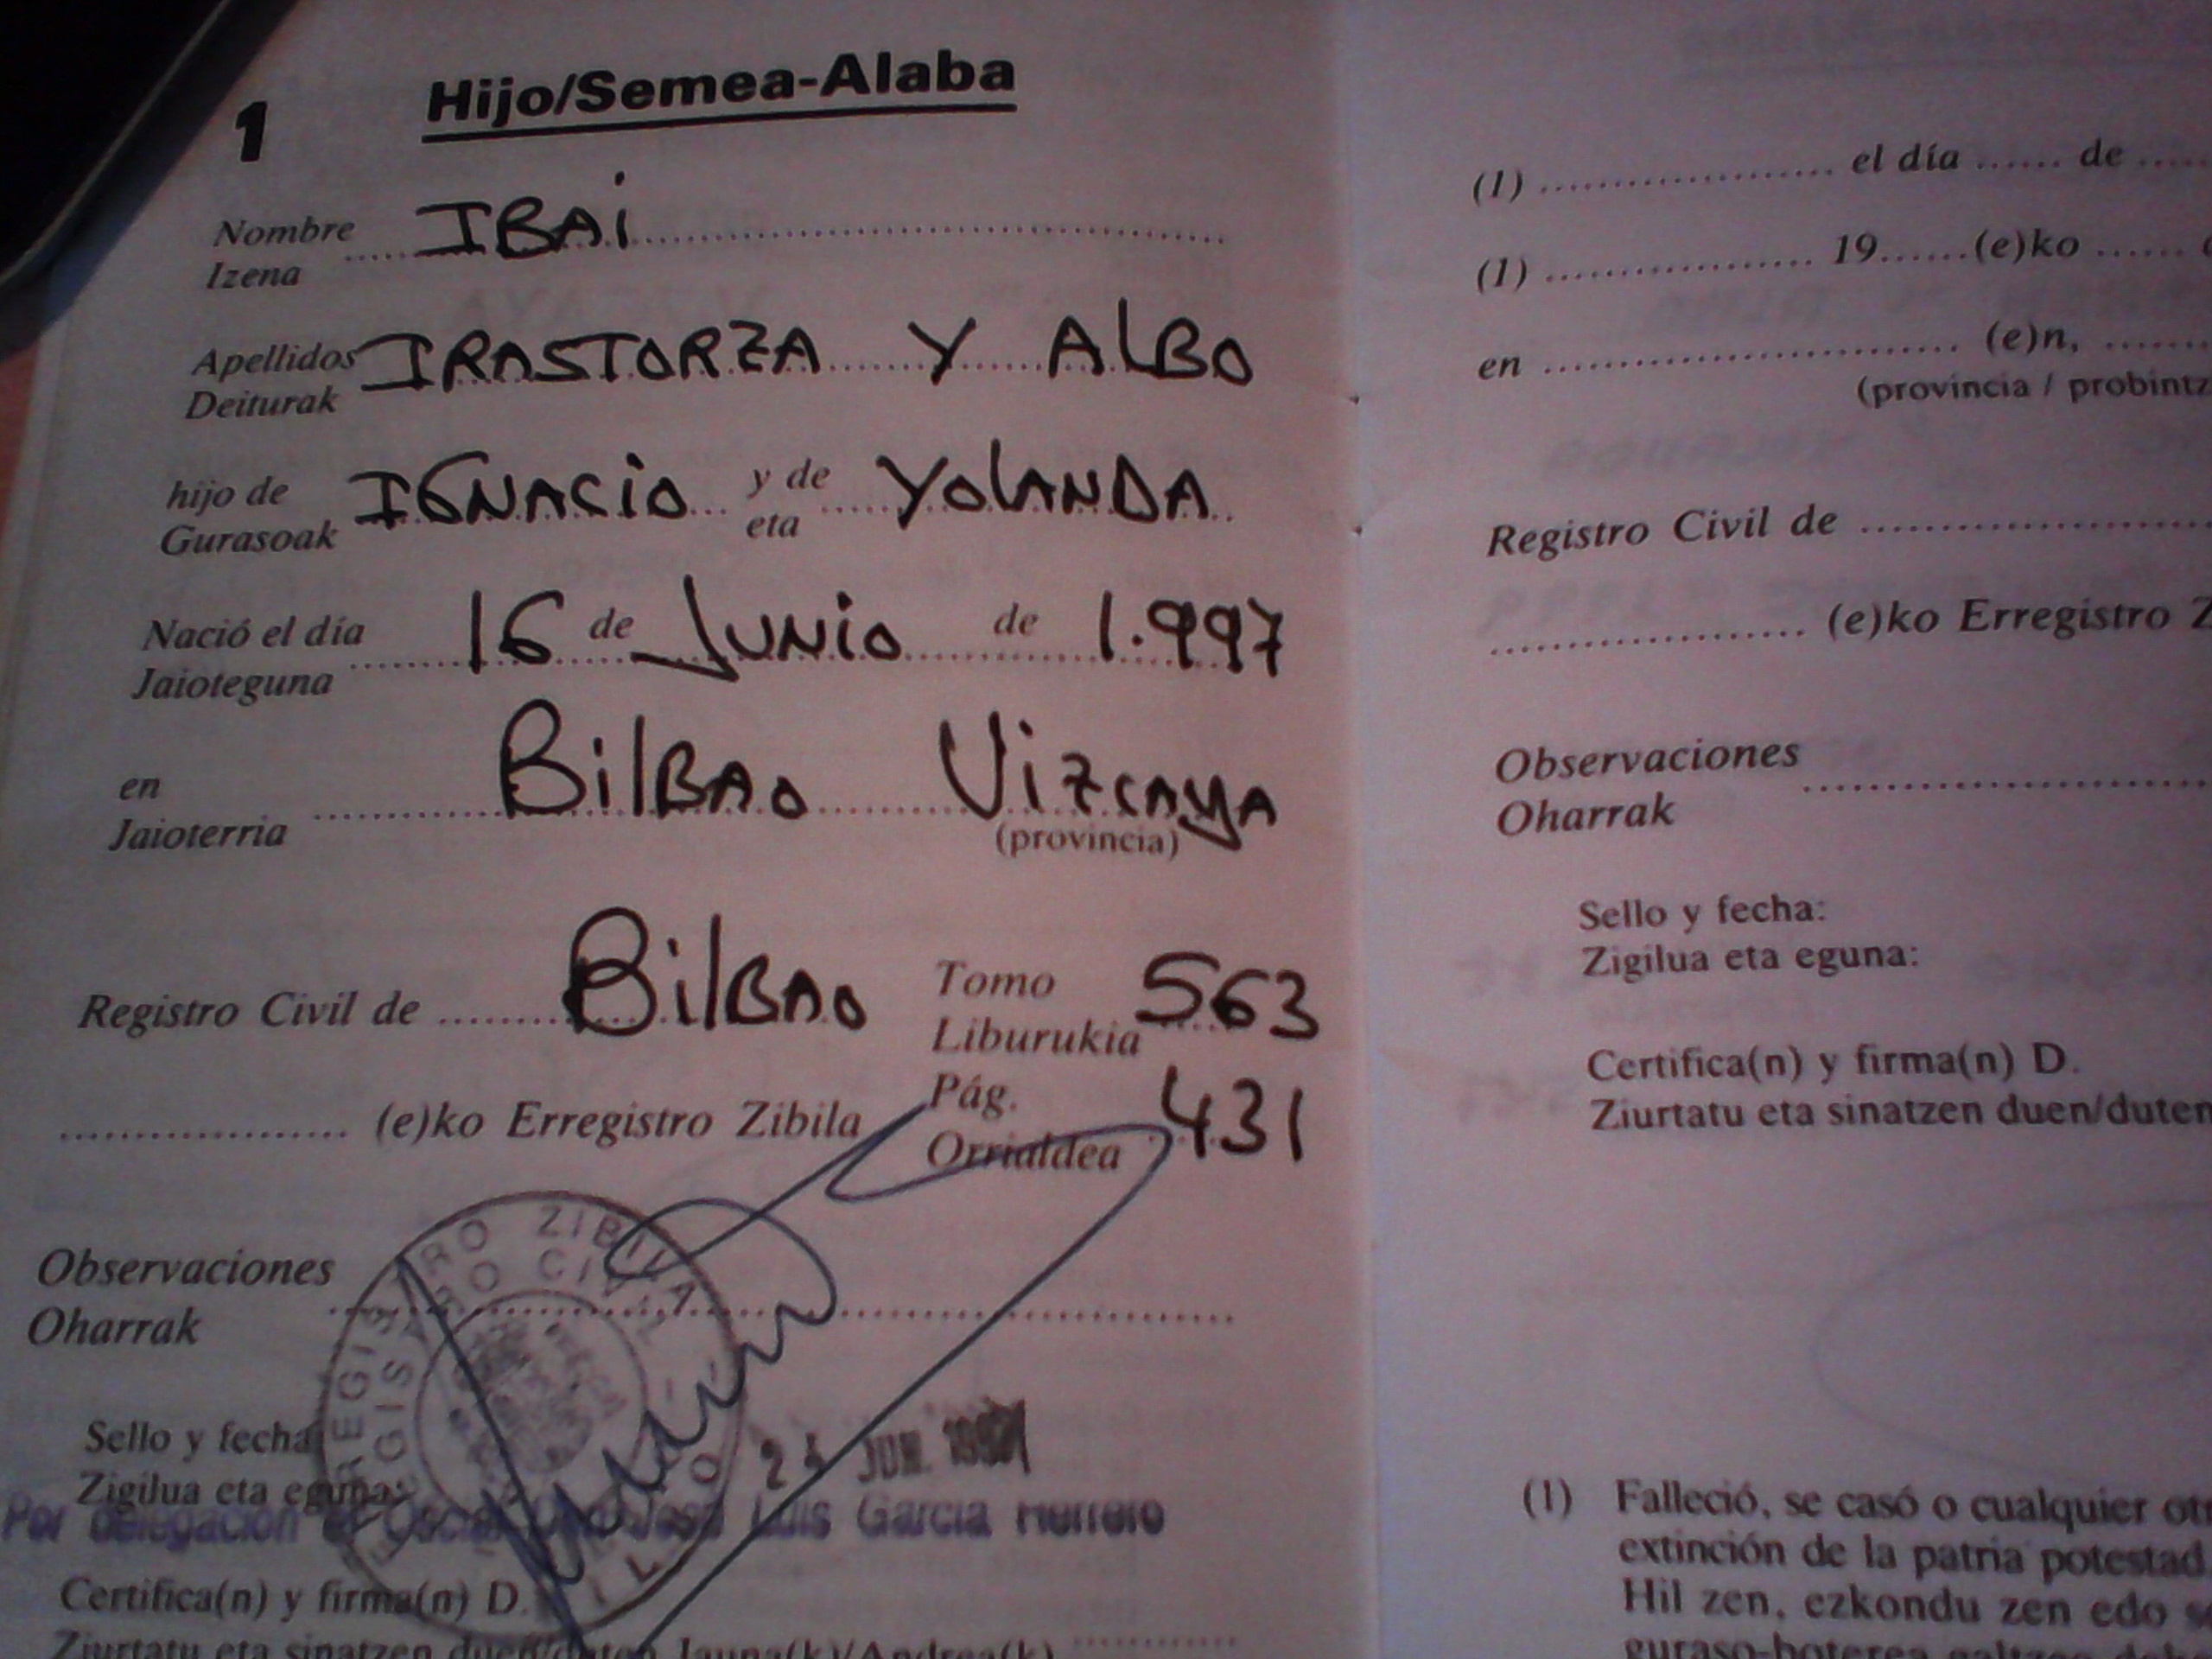 1 Hijo/Semea-Alaba
Nombre IBAi
Izena
Apellidos IRASTORZA Y AlBO
Deiturak
hijo de IGNACiO y de YOlANDA
Gurasoak eta
Nació el día 16 de JUNiO de 1.997
Jaioteguna
en BilBAO VizcAyA
Jaioterria (provincia)
Registro Civil de BilBAO Tomo 563
Liburukia
(e)ko Erregistro Zibila Pág. 431
Orrialdea
Observaciones
Oharrak
ERREGISTRO ZIBILA
REGISTRO CIVIL
BILBAO
Sello y fecha:
Zigilua eta eguna:
24 JUN. 1997
Por delegación el Oficial Don José Luis García Herrero
Certifica(n) y firma(n) D.
Ziurtatu eta sinatzen duen/duten Jauna(k)/Andrea(k)
(1) el día de
(1) 19 (e)ko
en (e)n,
(provincia / probintz
Registro Civil de
(e)ko Erregistro Z
Observaciones
Oharrak
Sello y fecha:
Zigilua eta eguna:
Certifica(n) y firma(n) D.
Ziurtatu eta sinatzen duen/duten
(1) Falleció, se casó o cualquier otr
extinción de la patria potestad
Hil zen, ezkondu zen edo
guraso-boterea galtzea